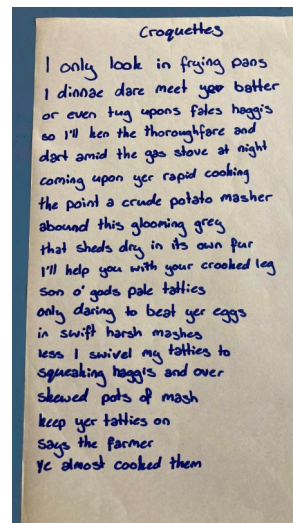 Croquettes
I only look in frying pans
I dinnae dare meet yer batter
or even tug upons fales haggis
so I'll ken the thoroughfare and
dart amid the gas stove at night
coming upon yer rapid cooking
the point a crude potato masher
abound this glooming grey
that sheds dry in its own fur
I'll help you with your crooked leg
son o' gods pale tatties
only daring to beat yer eggs
in swift harsh mashes
less I swivel my tatties to
squeaking haggis and over
skewed pots of mash
keep yer tatties on
says the farmer
ye almost cooked them